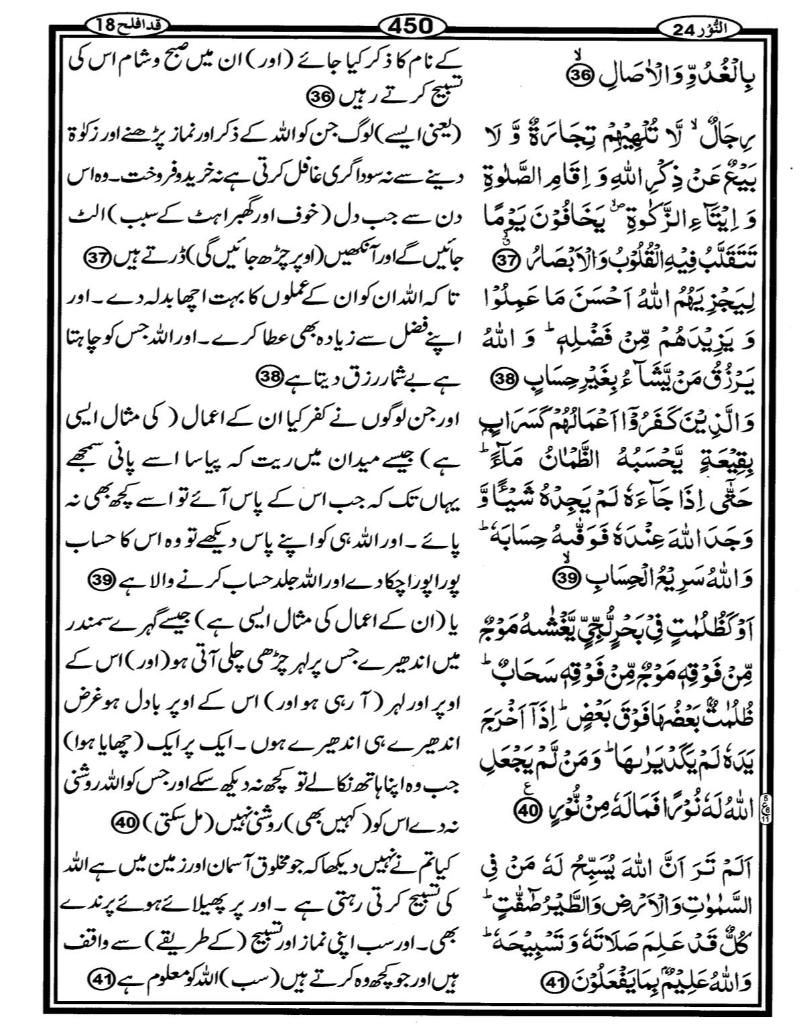 النُّوْر 24
450
قد افلح 18
بِالْغُدُوِّ وَالْاٰصَالِ ۙ 36
رِجَالٌ ۙ لَّا تُلْهِيْهِمْ تِجَارَةٌ وَّ لَا
بَيْعٌ عَنْ ذِكْرِ اللّٰهِ وَ اِقَامِ الصَّلٰوةِ
وَ اِيْتَآءِ الزَّكٰوةِ ۪ۙ يَخَافُوْنَ يَوْمًا
تَتَقَلَّبُ فِيْهِ الْقُلُوْبُ وَالْاَبْصَارُ ۙ 37
لِيَجْزِيَهُمُ اللّٰهُ اَحْسَنَ مَا عَمِلُوْا
وَ يَزِيْدَهُمْ مِّنْ فَضْلِهٖ ؕ وَ اللّٰهُ
يَرْزُقُ مَنْ يَّشَآءُ بِغَيْرِ حِسَابٍ 38
وَالَّذِيْنَ كَفَرُوْۤا اَعْمَالُهُمْ كَسَرَابٍۭ
بِقِيْعَةٍ يَّحْسَبُهُ الظَّمْاٰنُ مَآءً ؕ
حَتّٰۤى اِذَا جَآءَهٗ لَمْ يَجِدْهُ شَيْـًٔا وَّ
وَجَدَ اللّٰهَ عِنْدَهٗ فَوَفّٰىهُ حِسَابَهٗ ؕ
وَاللّٰهُ سَرِيْعُ الْحِسَابِ ۙ 39
اَوْ كَظُلُمٰتٍ فِيْ بَحْرٍ لُّجِّيٍّ يَّغْشٰىهُ مَوْجٌ
مِّنْ فَوْقِهٖ مَوْجٌ مِّنْ فَوْقِهٖ سَحَابٌ ؕ
ظُلُمٰتٌۢ بَعْضُهَا فَوْقَ بَعْضٍ ؕ اِذَاۤ اَخْرَجَ
يَدَهٗ لَمْ يَكَدْ يَرٰىهَا ؕ وَمَنْ لَّمْ يَجْعَلِ
اللّٰهُ لَهٗ نُوْرًا فَمَا لَهٗ مِنْ نُّوْرٍ 40
اَلَمْ تَرَ اَنَّ اللّٰهَ يُسَبِّحُ لَهٗ مَنْ فِي
السَّمٰوٰتِ وَالْاَرْضِ وَالطَّيْرُ صٰٓفّٰتٍ ؕ
كُلٌّ قَدْ عَلِمَ صَلَاتَهٗ وَ تَسْبِيْحَهٗ ؕ
وَاللّٰهُ عَلِيْمٌۢ بِمَا يَفْعَلُوْنَ 41
کے نام کا ذکر کیا جائے (اور) ان میں صبح و شام اس کی
تسبیح کرتے رہیں 36
(یعنی ایسے) لوگ جن کو اللہ کے ذکر اور نماز پڑھنے اور زکوٰۃ
دینے سے نہ سوداگری غافل کرتی ہے نہ خرید و فروخت۔ وہ اس
دن سے جب دل (خوف اور گھبراہٹ کے سبب) الٹ
جائیں گے اور آنکھیں (اوپر چڑھ جائیں گی) ڈرتے ہیں 37
تا کہ اللہ ان کو ان کے عملوں کا بہت اچھا بدلہ دے۔ اور
اپنے فضل سے زیادہ بھی عطا کرے۔ اور اللہ جس کو چاہتا
ہے بے شمار رزق دیتا ہے 38
اور جن لوگوں نے کفر کیا ان کے اعمال (کی مثال ایسی
ہے) جیسے میدان میں ریت کہ پیاسا اسے پانی سمجھے
یہاں تک کہ جب اس کے پاس آئے تو اسے کچھ بھی نہ
پائے۔ اور اللہ ہی کو اپنے پاس دیکھے تو وہ اس کا حساب
پورا پورا چکا دے اور اللہ جلد حساب کرنے والا ہے 39
یا (ان کے اعمال کی مثال ایسی ہے) جیسے گہرے سمندر
میں اندھیرے جس پر لہر چڑھی چلی آتی ہو (اور) اس کے
اوپر اور لہر (آ رہی ہو اور) اس کے اوپر بادل ہو غرض
اندھیرے ہی اندھیرے ہوں۔ ایک پر ایک (چھایا ہوا)
جب وہ اپنا ہاتھ نکالے تو کچھ نہ دیکھ سکے اور جس کو اللہ روشنی
نہ دے اس کو (کہیں بھی) روشنی نہیں (مل سکتی) 40
کیا تم نے نہیں دیکھا کہ جو مخلوق آسمان اور زمین میں ہے اللہ
کی تسبیح کرتی رہتی ہے۔ اور پر پھیلائے ہوئے پرندے
بھی۔ اور سب اپنی نماز اور تسبیح (کے طریقے) سے واقف
ہیں اور جو کچھ وہ کرتے ہیں (سب) اللہ کو معلوم ہے 41